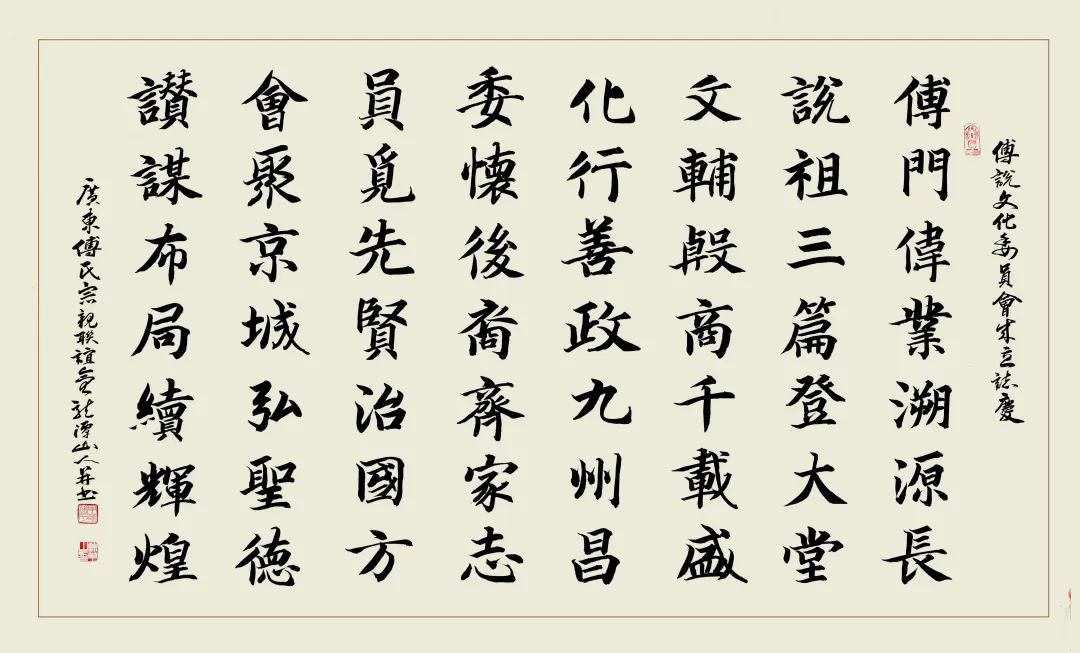 傅說文化委員會成立誌慶
傅門偉業溯源長
說祖三篇登大堂
文輔殷商千載盛
化行善政九州昌
委懷後裔齊家志
員覓先賢治國方
會聚京城弘聖德
讃謀布局續輝煌
廣東傅氏宗親聯誼會龍潭山人並書